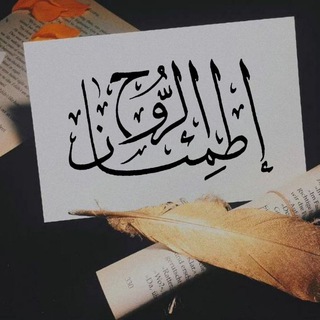 إطمئنان الرُّوح